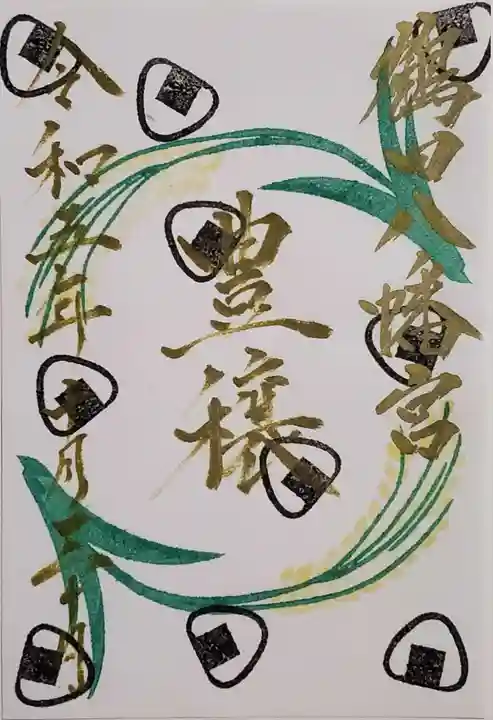 鶴田八幡宮
豊穣
令和五年十月二十日